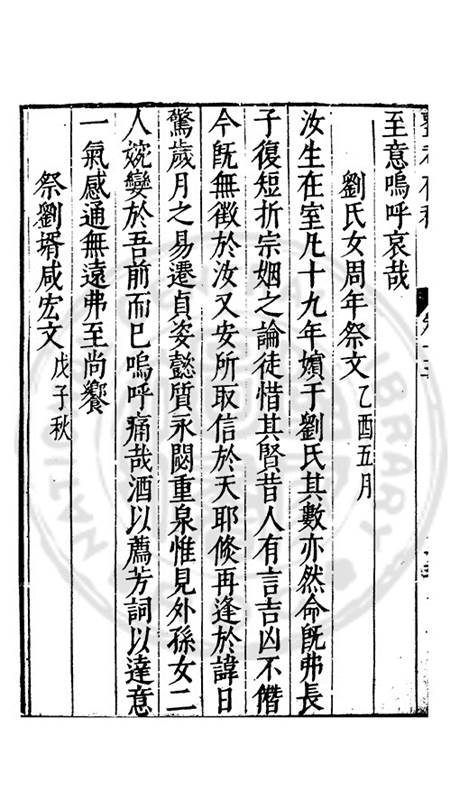 至意嗚呼哀哉
劉氏女周年祭文乙酉五月
汝生在室凡十九年嬪于劉氏其數亦然命旣弗長
子復短折宗姻之論徒惜其賢昔人有言吉凶不僭
今旣無徵於汝又安所取信於天耶倐再逢於諱日
驚歲月之易遷貞姿懿質永閟重泉惟見外孫女二
人婉孌於吾前而已嗚呼痛哉酒以薦芳詞以達意
一氣感通無遠弗至尚饗
祭劉壻咸宏文戊子秋